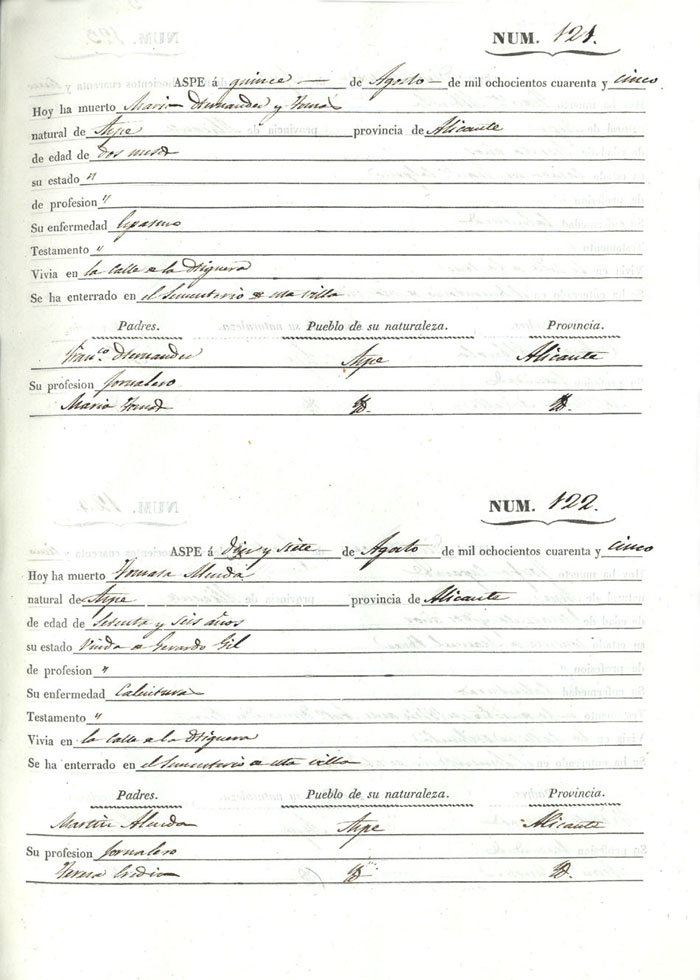 NUM. 121.
ASPE á quince de Agosto de mil ochocientos cuarenta y cinco
Hoy ha muerto Maria Hernandez y
natural de Aspe provincia de Alicante
de edad de dos meses
su estado "
de profesion "
Su enfermedad Espasmo
Testamento "
Vivia en la Calle de la Higuera
Se ha enterrado en el Sementerio de esta villa
Padres. Pueblo de su naturaleza. Provincia.
Franco Hernandez Aspe Alicante
Su profesion Jornalero
Maria Yd. Yd.
NUM. 122.
ASPE á diez y siete de Agosto de mil ochocientos cuarenta y cinco
Hoy ha muerto Tomasa
natural de Aspe provincia de Alicante
de edad de setenta y seis años
su estado Viuda de Gerardo Gil
de profesion "
Su enfermedad Calentura
Testamento "
Vivia en la Calle de la Higuera
Se ha enterrado en el Sementerio de esta villa
Padres. Pueblo de su naturaleza. Provincia.
Martin Aspe Alicante
Su profesion Jornalero
Teresa Yd. Yd.